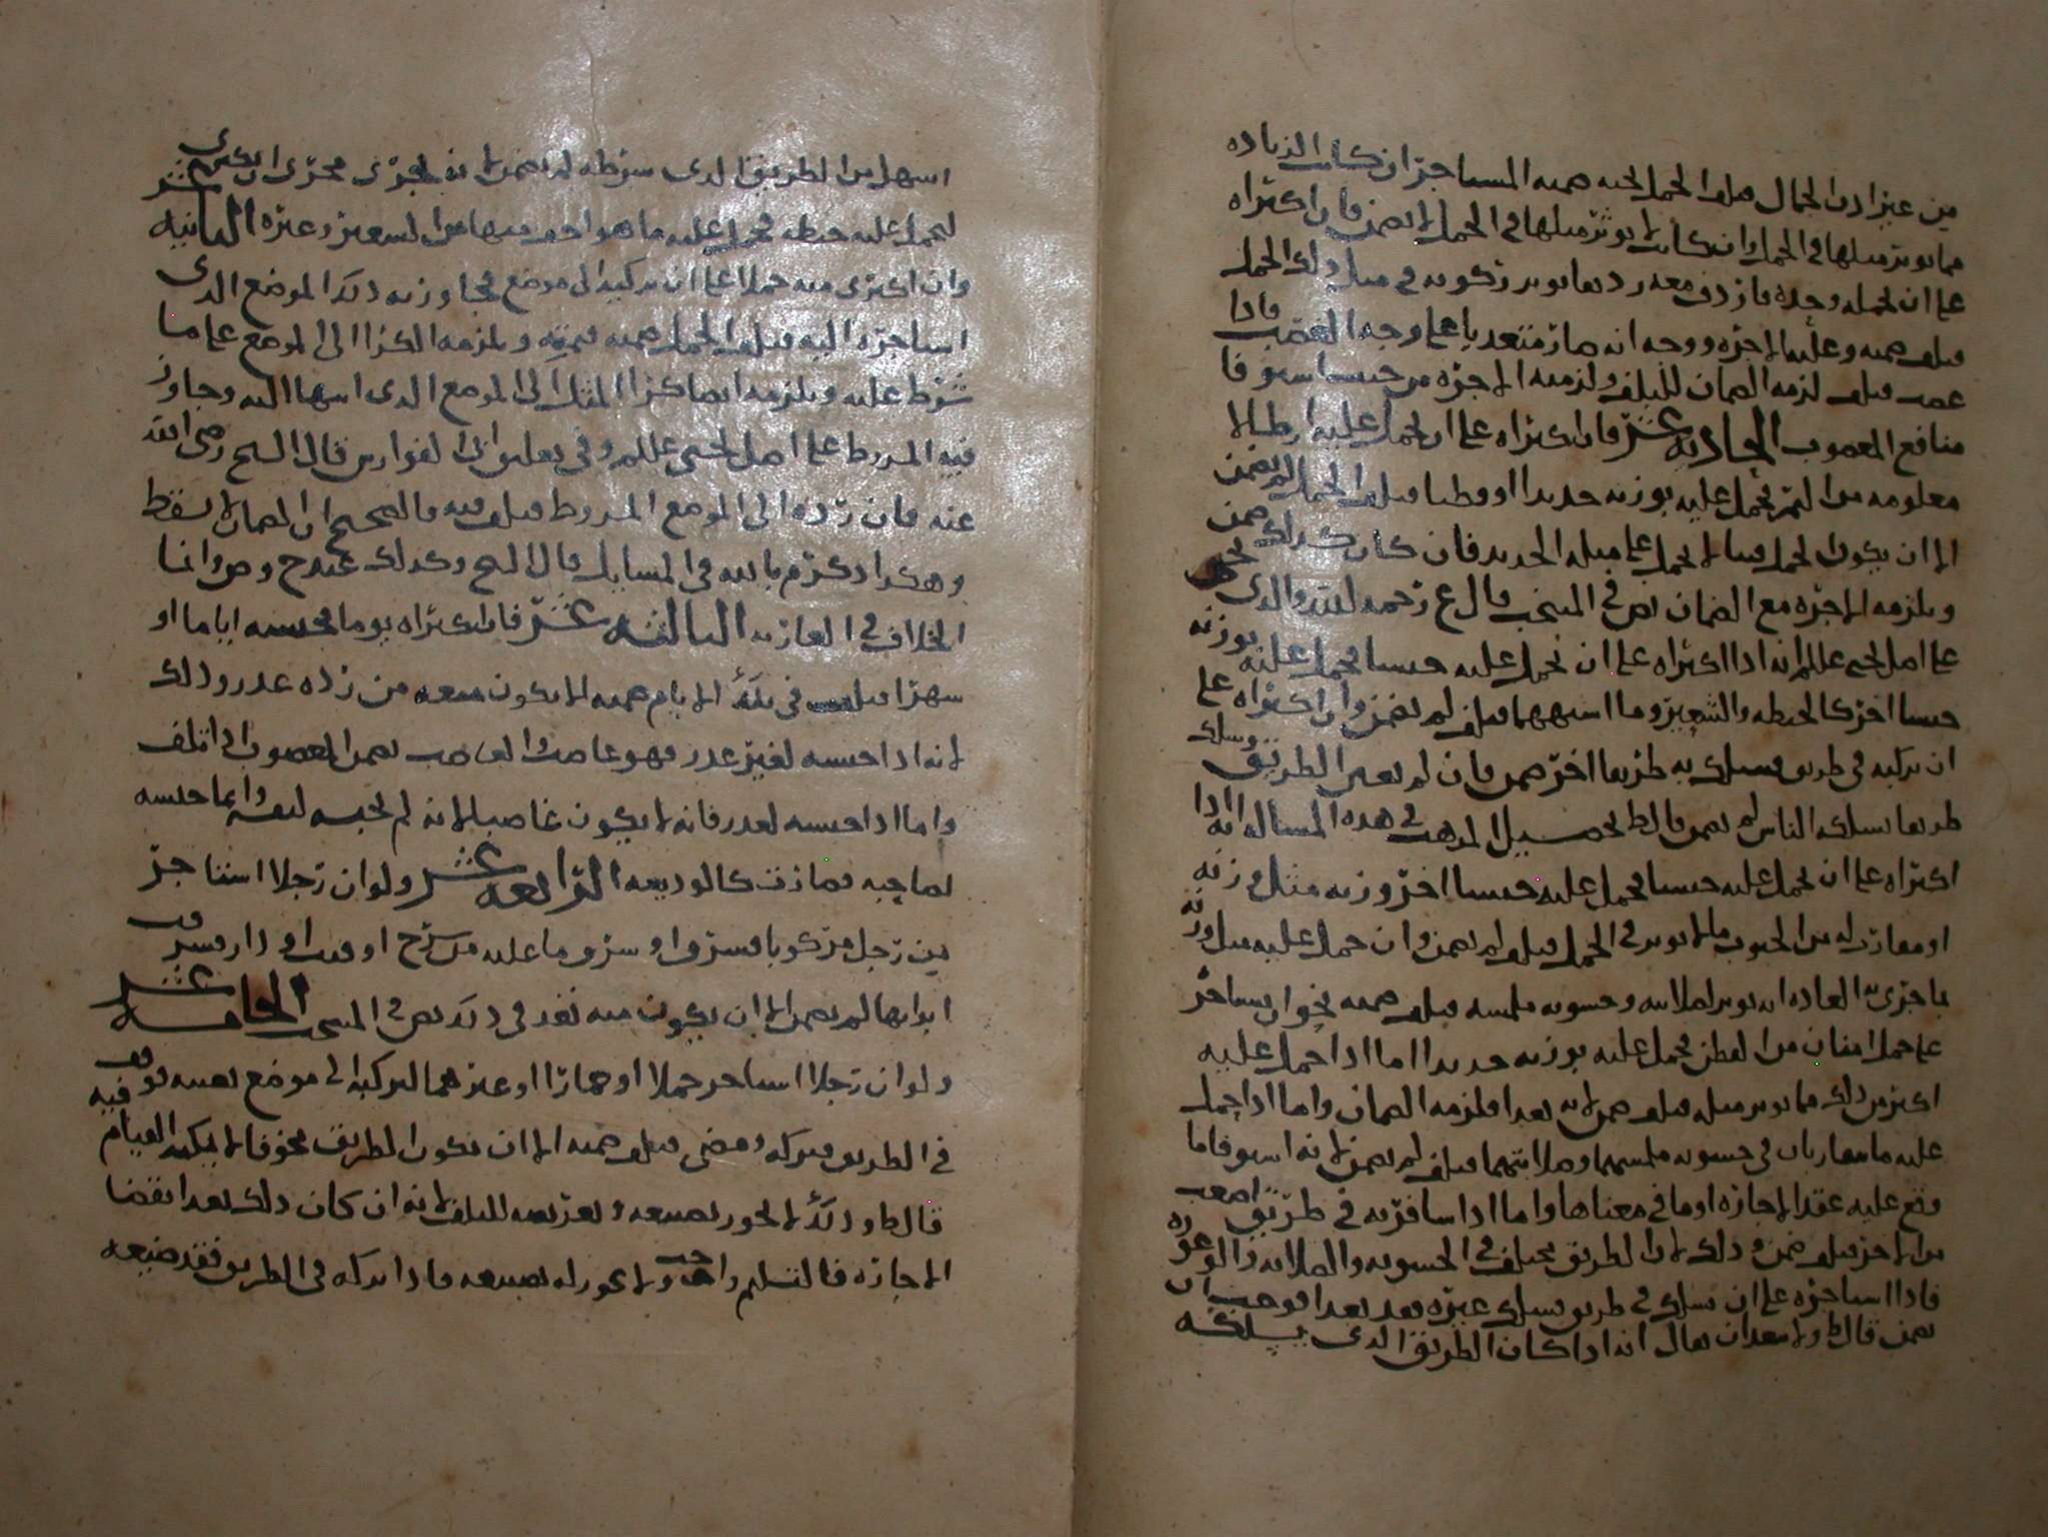 من غير اذن الجمال فتلف الجمل لحبه ضمنه المستاجر ان كانت الزياده
مما يوثر مثلها في الجمل وان كانت لا يوثر مثلها في الجمل لا يضمن فان اكتراه
على ان يحمله وحده فاردف معه رديفا يوثر ركوبه في مثل ذلك الجمل
فتلف ضمنه وعليه الاجره ووجه انه صار متعديا على وجه الغصب فاذا
غصب فتلف لزمه الضمان للتلف ولزمته الاجره من حيث استوفا
منافع المغصوب الحاديه عشر فان اكتراه على ان يحمل عليه ارطالا
معلومه من التمر فحمل عليه بوزنه حديدا او قطنا فتلف الجمل لم يضمن
الا ان يكون الجمل مما لا يحمل على مثله الحديد فان كان كذلك ضمن
ويلزمه الاجره مع الضمان نص في المنتخب قال ع رحمه الله والذي
على اصل يحيى عللم انه اذا اكتراه على ان يحمل عليه جنسا فحمل عليه بوزنه
جنسا اخر كالحنطه والشعير وما اشبههما فتلف لم يضمن وان اكتراه على
ان يركبه في طريق فسلك به طريقا اخر ضمن فان لم يعين الطريق وسلك
طريقا يسلكه الناس لم يضمن قال ط تحصيل المذهب في هذه المسأله انه اذا
اكتراه على ان يحمل عليه جنسا فحمل عليه جنسا اخر وزنه مثل وزنه
او مقارب له من الحبوب ما لا يوثر في الجمل فتلف لم يضمن وان حمل عليه مثل وزنه
ما جرى العاده انه يوثر لصلابته وخشونه ملمسه فتلف ضمنه نحو ان يستاجر
على حمل امنان من القطن فحمل عليه بوزنه حديدا اما اذا حمل عليه
اكثر من ذلك مما يوثر مثله فتلف ضمن لانه تعدا فلزمه الضمان واما اذا حمل
عليه ما يتقاربان في خشونه ملمسهما وصلابتهما فتلف لم يضمن لانه استوفا ما
وقع عليه عقد الاجاره او ما في معناها واما اذا سافر به في طريق اصعب
من الاخر فتلف ضمن وذلك لان الطريق تختلف في الخشونه والصلابه والوعوره
فاذا استاجره على ان يسلك في طريق فسلك غيره فقد تعدا فوجب ان
يضمن قال ط ولا يبعد ان يقال انه اذا كان الطريق الذي يسلكه
اسهل من الطريق الذي شرطه لم يضمن لانه يجري مجرى ان يكتري
ليحمل عليه حنطه فحمل عليه ما هو اخف منها من الشعير وغيره الثانيه عشر
وان اكترى منه جملا على ان يركبه الى موضع فجاوز به ذلك الموضع الذي
استاجره اليه فتلف الجمل ضمنه بقيمته ويلزمه الكرا الى الموضع على ما
شرط عليه ويلزمه ايضا كرا المثل الى الموضع الذي انتهى اليه وجاوز
فيه المشروط على اصل يحيى عللم وفي تعليق ابي الفوارس قال الشيخ رضي الله
عنه فان رده الى الموضع المشروط فتلف فيه فالصحيح ان الضمان لا يسقط
وهكذا ذكره م بالله في المسايل قال الشيخ وكذلك عند ح وص وانما
الخلاف في العاريه الثالثه عشر فان اكتراه يوما فحبسه اياما او
شهرا فتلف في تلك الايام ضمنه الا يكون منعه من رده عذر وذلك
لانه اذا حبسه لغير عذر فهو غاصب والغاصب يضمن المغصوب اذا تلف
واما اذا حبسه لعذر فانه لا يكون غاصبا لانه لم يحبسه لنفسه وانما حبسه
لصاحبه فصارت كالوديعه الرابعه عشر ولو ان رجلا استاجر
من رجل مركوبا فسرق او سرق ما عليه من سرج او قتب او دار فسرقت
ابوابها لم يضمن الا ان يكون منه تعد في ذلك نص في المنتخب الخامسه عشر
ولو ان رجلا استاجر جملا او حمارا او غيرهما ليركبه الى موضع بعينه فوقف
في الطريق فتركه ومضى فتلف ضمنه الا ان تكون الطريق مخوفا لا يمكنه القيام فيه
قال ط وذلك لا يجوز تضييعه وتعريضه للتلف لانه ان كان ذلك بعد انقضا
الاجاره فالتسليم واجب ولا يجوز له تضييعه فاذا تركه في الطريق فقد ضيعه